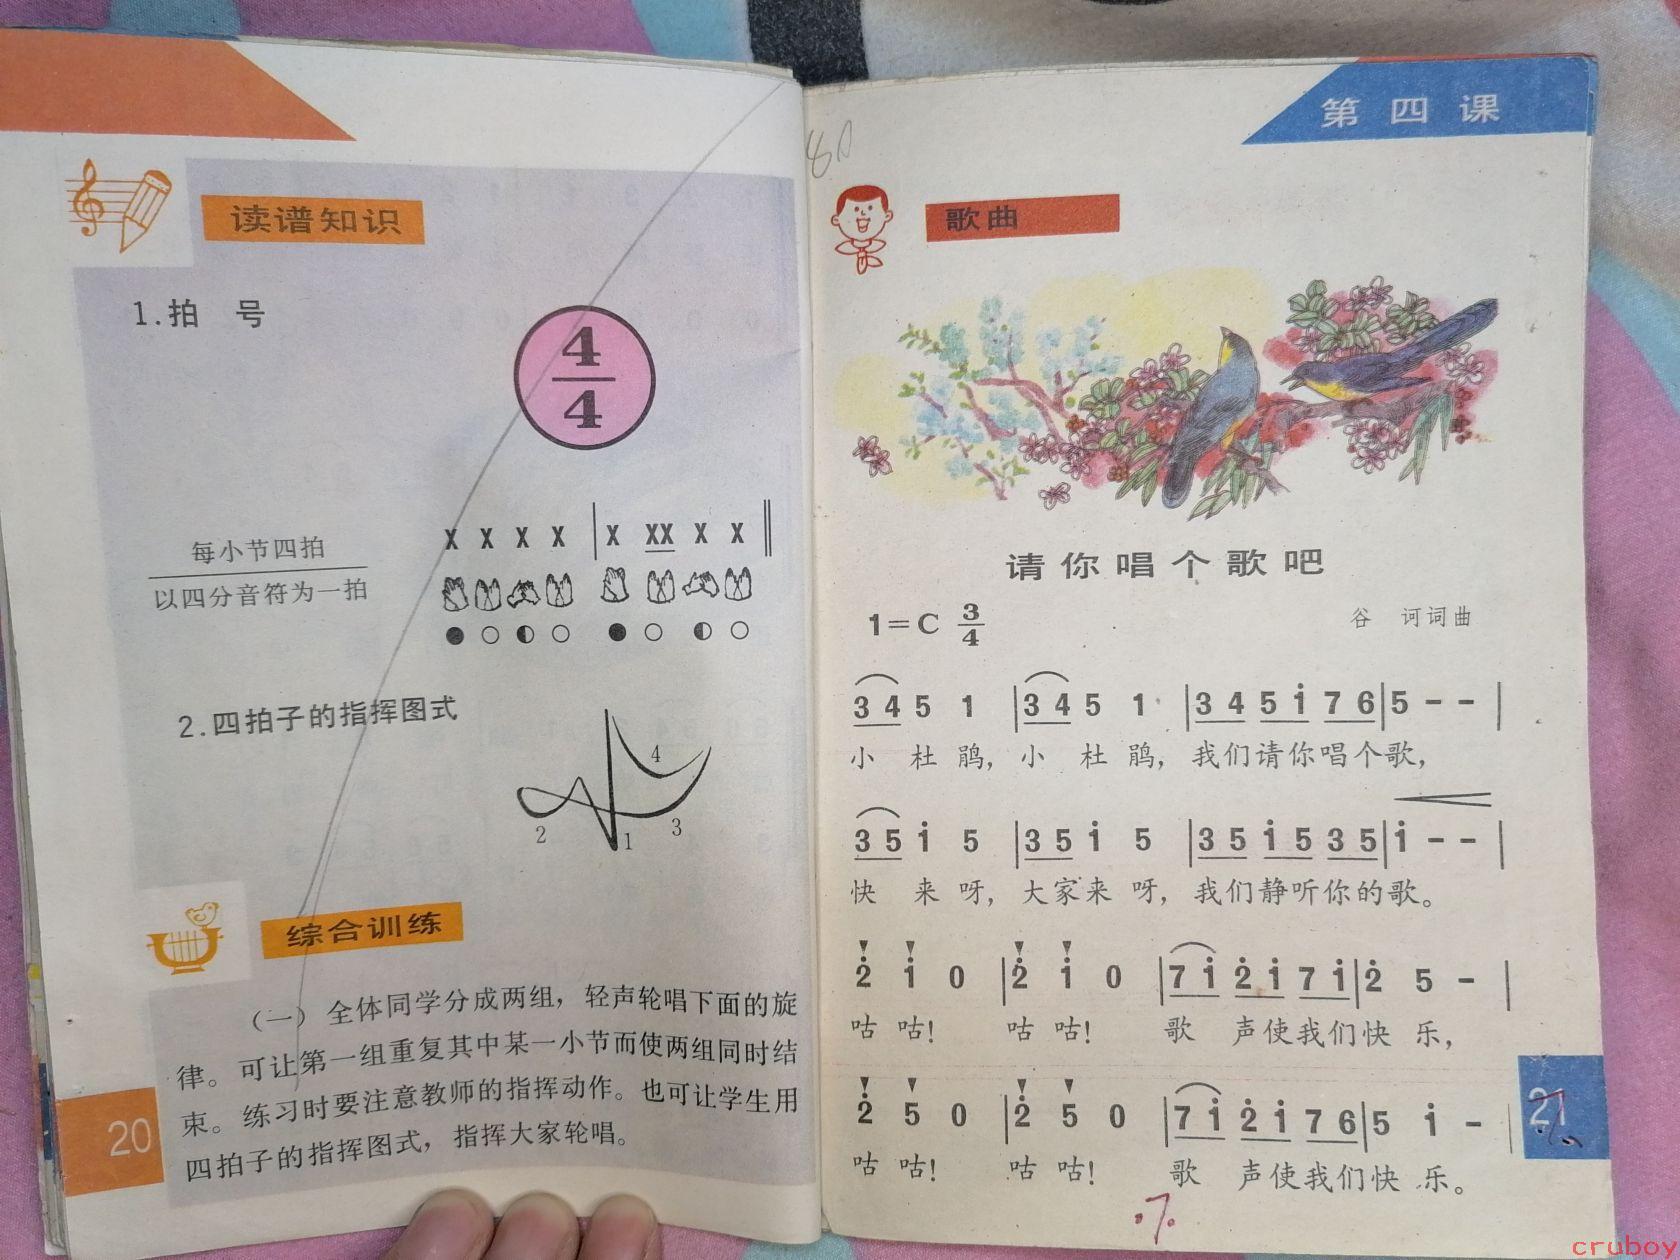 读谱知识
1.拍 号
4
4
每小节四拍
以四分音符为一拍
X X X X | X XX X X ‖
2.四拍子的指挥图式
4
2 1 3
综合训练
（一） 全体同学分成两组，轻声轮唱下面的旋
律。可让第一组重复其中某一小节而使两组同时结
束。练习时要注意教师的指挥动作。也可让学生用
四拍子的指挥图式，指挥大家轮唱。
20
第四课
歌曲
请你唱个歌吧
1=C 3/4
谷 诃词曲
3 4 5 1 | 3 4 5 1 | 3 4 5 i 7 6 | 5 - - |
小 杜 鹃， 小 杜 鹃， 我们请你唱个歌，
3 5 i 5 | 3 5 i 5 | 3 5 i 5 3 5 | i - - |
快 来 呀， 大家来 呀， 我们静听你的歌。
2̇ i 0 | 2̇ i 0 | 7 i 2̇ i 7 i | 2̇ 5 - |
咕 咕！ 咕 咕！ 歌 声使我们快 乐，
2̇ 5 0 | 2̇ 5 0 | 7 i 2̇ i 7 6 | 5 i - |
咕 咕！ 咕 咕！ 歌 声使我们快 乐。
21
cruboy